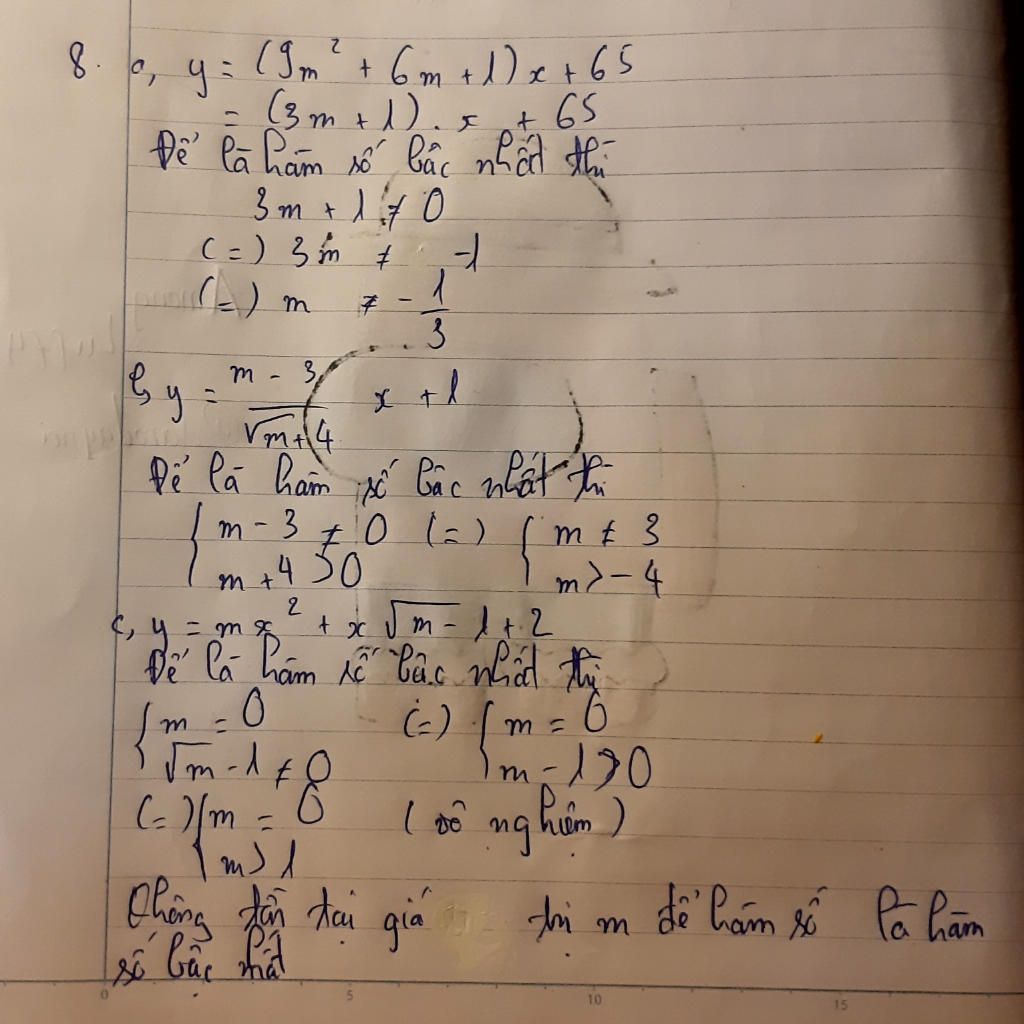 8. a, y = (9m² + 6m + 1)x + 65
= (3m + 1). x + 65
Để là hàm số bậc nhất thì
3m + 1 ≠ 0
(=) 3m ≠ -1
(=) m ≠ - 1/3
b, y = (m - 3)/(√m+4) x + 1
Để là hàm số bậc nhất thì
{ m - 3 ≠ 0 (=) { m ≠ 3
m + 4 > 0 m > - 4
c, y = mx² + x √m - 1 + 2
Để là hàm số bậc nhất thì
{ m = 0 (=) { m = 0
√m - 1 ≠ 0 m - 1 > 0
(=) { m = 0 (vô nghiệm)
m > 1
Không tồn tại giá trị m để hàm số là hàm
số bậc nhất
0 5 10 15